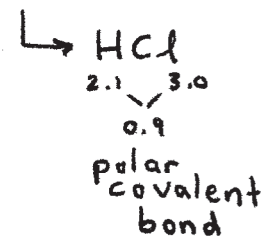 HCl
2.1 3.0
0.9
polar
covalent
bond